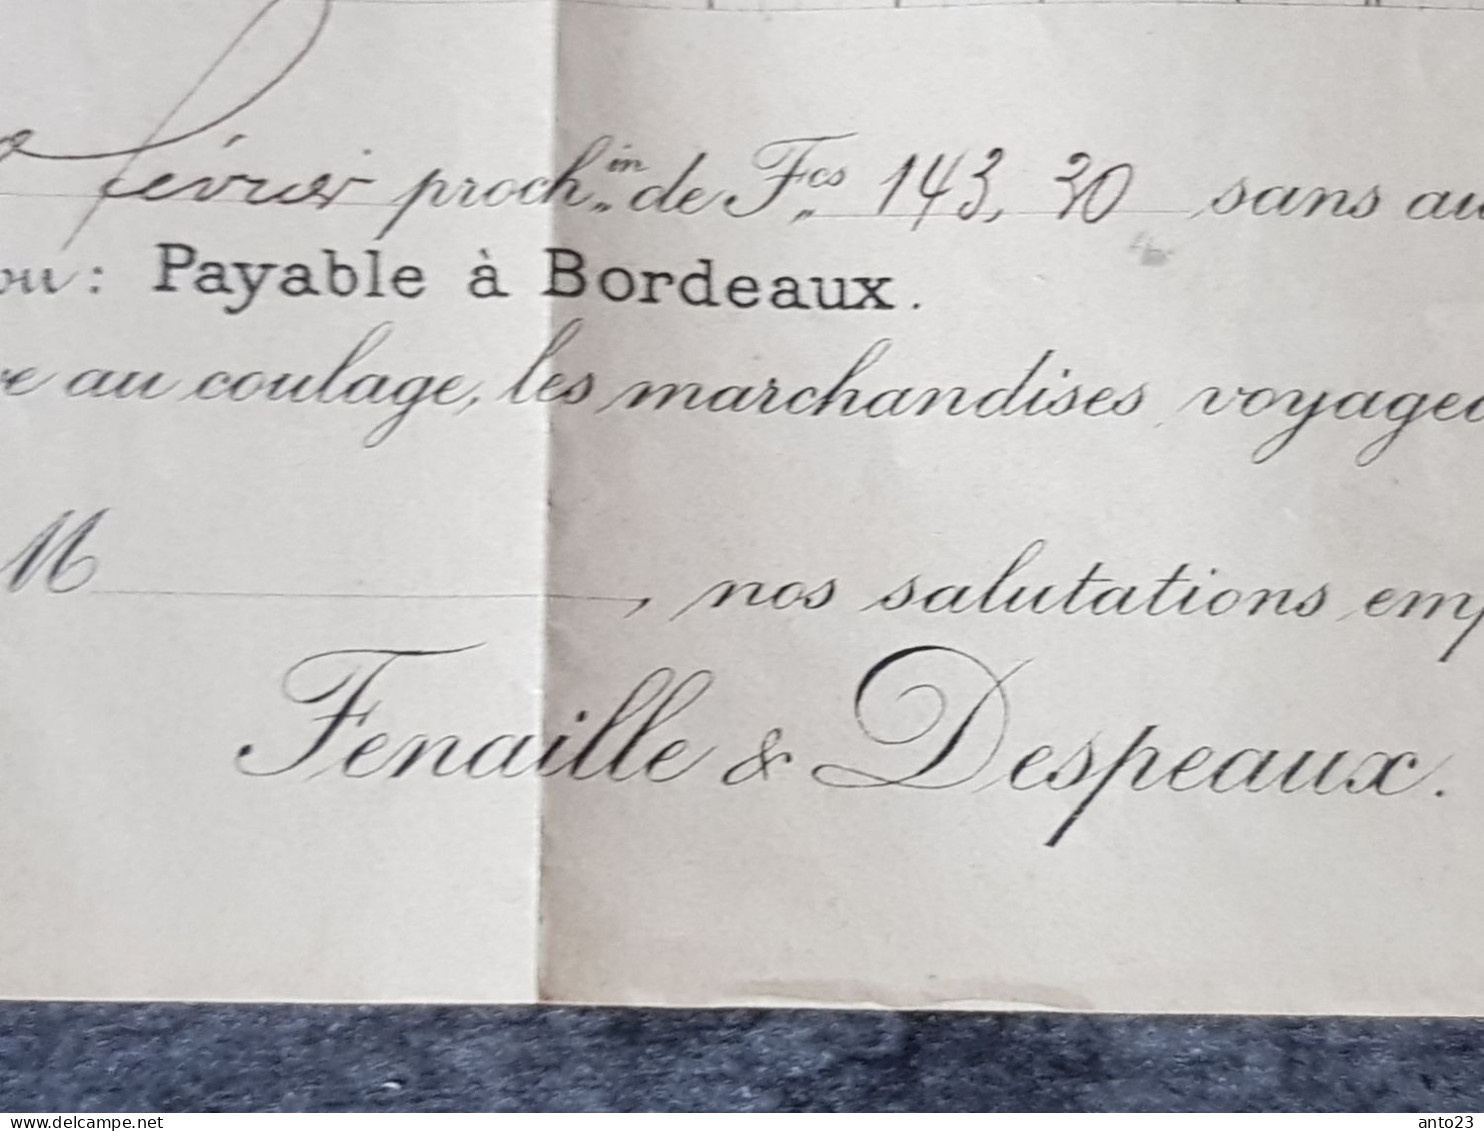 février proch.in de Fcs 143, 30 sans au
ou: Payable à Bordeaux.
au coulage, les marchandises voyage
M , nos salutations emp
Fenaille & Despeaux.
anto23